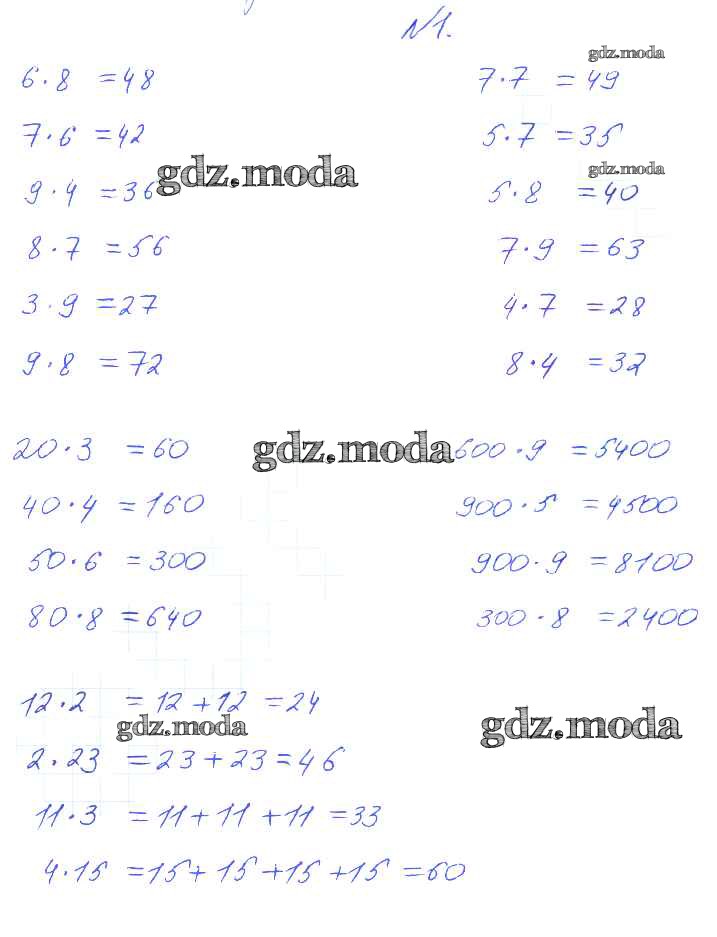 №1.
gdz.moda
6·8 =48 7·7 =49
7·6 =42 5·7 =35
gdz.moda gdz.moda
9·4 =36 5·8 =40
8·7 =56 7·9 =63
3·9 =27 4·7 =28
9·8 =72 8·4 =32
20·3 =60 gdz.moda 600·9 =5400
40·4 =160 900·5 =4500
50·6 =300 900·9 =8100
80·8 =640 300·8 =2400
12·2 =12+12 =24
gdz.moda gdz.moda
2·23 =23+23=46
11·3 =11+11+11 =33
4·15 =15+15+15+15 =60